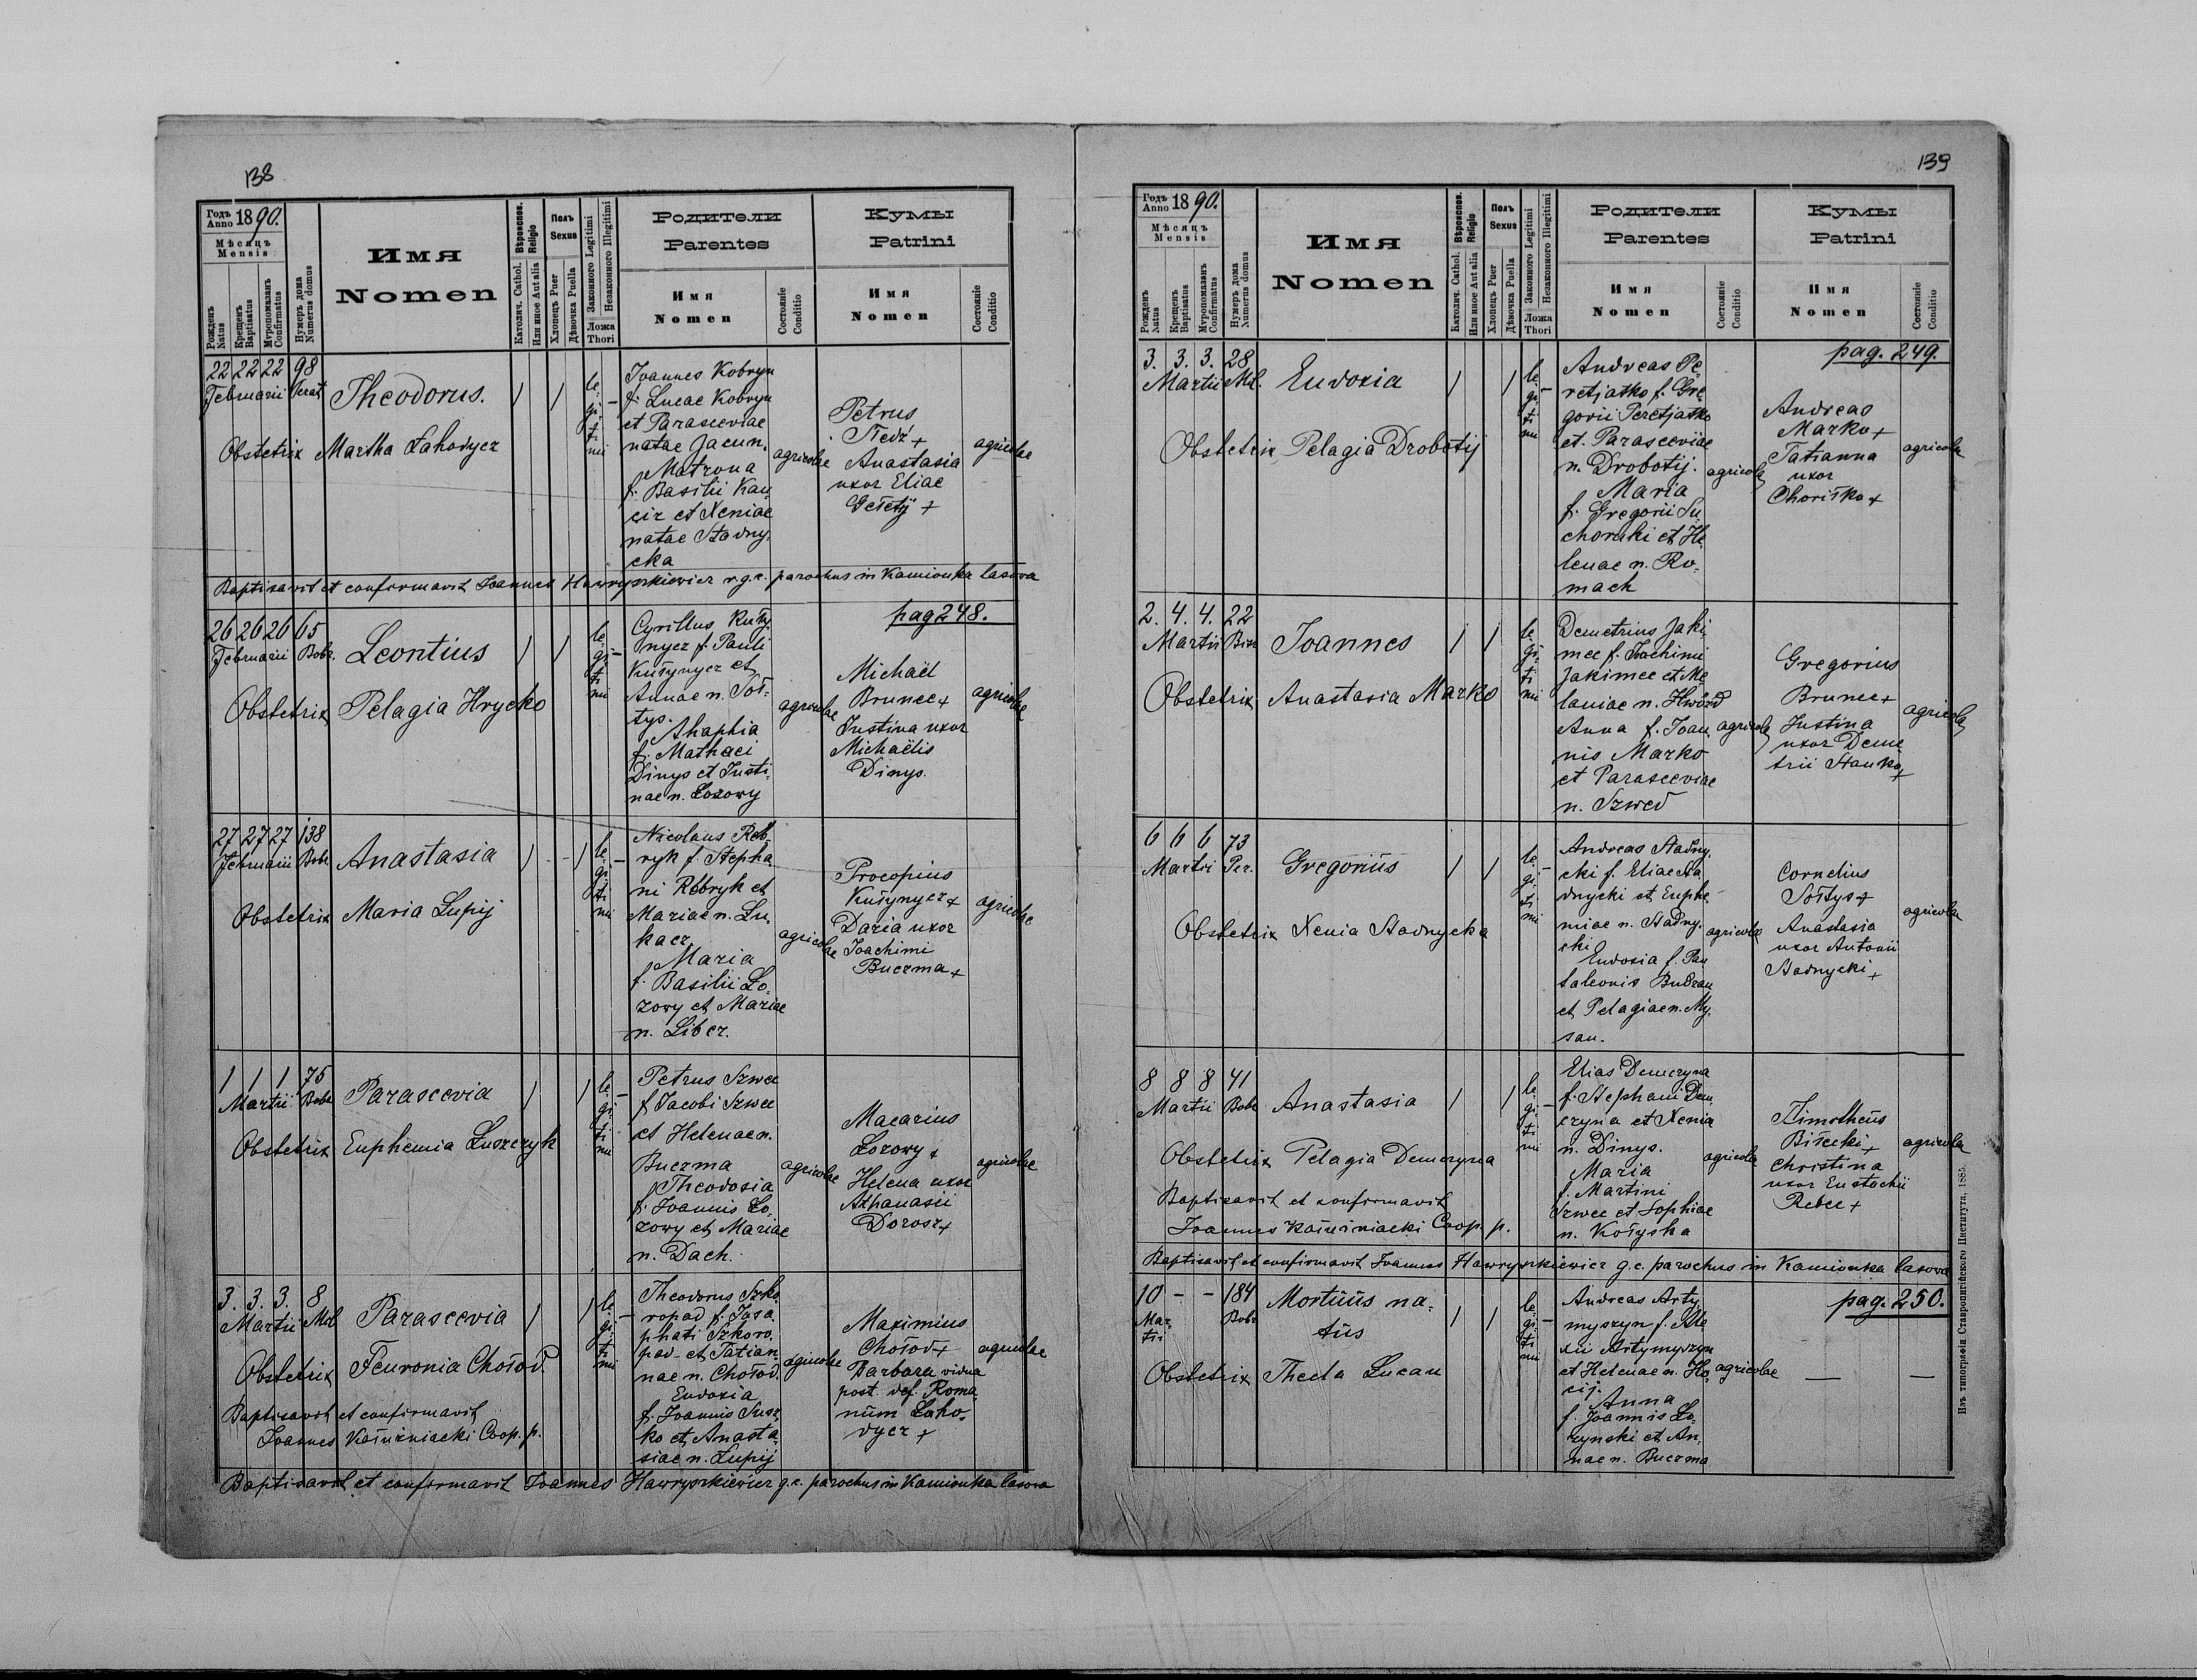 138
Годъ Anno 1890.
Мѣсяцъ Mensis
Рожденъ Natus
Крещенъ Baptisatus
Муропомазанъ Confirmatus
Нумеръ дома Numerus domus
Имя
Nomen
Вѣроиспов. Religio
Католич. Cathol.
Или иное Aut alia
Полъ Sexus
Хлопецъ Puer
Дѣвочка Puella
Законного Legitimi
Незаконного Illegitimi
Ложа Thori
Родители
Parentes
Имя Nomen
Состояніе Conditio
Кумы
Patrini
Имя Nomen
Состояніе Conditio
22 22 22 98
Februarii
Theodorus.
le-
gi-
ti
mi
Obstetrix Martha Lahodycz
Joannes Kobryn
f. Lucae Kobryn
et Parasceviae
natae Jacun.
Matrona
f. Basilii Kau
cir et Xeniae
natae Stadny-
cka
agricolae
Petrus
Fedź +
Anastasia
uxor Eliae
agricolae
Baptisavit et confirmavit Joannes Hawryszkiewicz r.g.c. parochus in Kamionka lasowa
pag 248.
26 26 26 65
Februarii Bobr.
Leontius
le-
gi-
ti
mi
Obstetrix Pelagia Hrycko
Cyrillus Kułty
nycz f. Pauli
Kułynycz et
Annae n. Soł-
tys.
Ahaphia
f. Mathaei
Dinys et Justi-
nae n. Łozowy
agricolae
Michaël
Brunec +
Justina uxor
Michaëlis
Dinys.
agricolae
27 27 27 138
Februarii Bobr
Anastasia
le-
gi-
ti
mi
Obstetrix Maria Łupij
Nicolaus Reb-
ryk f. Stepha
ni Rebryk et
Mariae n. Lu-
kacz
Maria
f. Basilii Ło-
zowy et Mariae
n. Liber.
agricolae
Procopius
Kułynycz +
Daria uxor
Joachimi
Buczma +
agricolae
1 1 1 75
Martii Bobr
Parascevia
le-
gi-
ti
mi
Obstetrix Euphemia Łuszczyk
Petrus Szwec
f. Jacobi Szwec
et Helenae n.
Buczma
Theodosia
f. Joannis Ło-
zowy et Mariae
n. Dach.
agricolae
Macarius
Łozowy +
Helena uxor
Athanasii
Dorosz +
agricolae
3. 3. 3. 8
Martii Mol
Parascevia
le-
gi-
ti
mi
Obstetrix Fevronia Chołod.
Theodorus Szko-
ropad f. Josa-
phati Szkoro-
pad et Tatian-
nae n. Chołod.
Eudoxia
f. Joannis Susz-
ko et Anasta-
siae n. Łupij
agricolae
Maximius
Chołod +
Barbara vidua
post def. Roma-
num Łaho-
dycz +
agricolae
Baptisavit et confirmavit
Joannes Kałużniacki Coop. p.
Baptisavit et confirmavit Joannes Hawryszkiewicz g.c. parochus in Kamionka lasowa
139
Годъ Anno 1890.
Мѣсяцъ Mensis
Рожденъ Natus
Крещенъ Baptisatus
Муропомазанъ Confirmatus
Нумеръ дома Numerus domus
Имя
Nomen
Вѣроиспов. Religio
Католич. Cathol.
Или иное Aut alia
Полъ Sexus
Хлопецъ Puer
Дѣвочка Puella
Законного Legitimi
Незаконного Illegitimi
Ложа Thori
Родители
Parentes
Имя Nomen
Состояніе Conditio
Кумы
Patrini
Имя Nomen
Состояніе Conditio
pag. 249.
3. 3. 3. 28
Martii Mol.
Eudoxia
le-
gi-
ti
mi
Obstetrix Pelagia Drobotij
Andreas Pe-
retjatko f. Gre-
gorii Peretjatko
et Parasceviae
n. Drobotij.
Maria
f. Gregorii Su
chorski et He-
lenae n. Ro-
mach
agricolae
Andreas
Marko +
Tatianna
uxor
agricolae
2. 4. 4. 22
Martii
Joannes
le-
gi-
ti
mi
Obstetrix Anastasia Marko
Demetrius Jaki
mec f. Joachimi
Jakimec et Me-
laniae n. Hwozd
Anna f. Joan-
nis Marko
et Parasceviae
n. Szwed
agricolae
Gregorius
Brunec +
Justina
uxor Deme
trii Stanko +
agricolae
6 6 6 73
Martii Per.
Gregorius
le-
gi-
ti
mi
Obstetrix Xenia Stadnycka
Andreas Stadny-
cki f. Eliae Sta-
dnycki et Euphe-
miae n. Stadny-
cki
Eudoxia f. Pan
taleonis Budzan
et Pelagiae n. My-
san.
agricolae
Cornelius
Sołtys +
Anastasia
uxor Antonii
Stadnycki +
agricolae
8 8 8 41
Martii Bobr
Anastasia
le-
gi-
ti
mi
Obstetrix Pelagia Demczyna
Baptisavit et confirmavit
Joannes Kałużniacki Coop. p.
Elias Demczyna
f. Stephani Dem-
czyna et Xenia
n. Dinys.
Maria
f. Martini
Szwec et Sophiae
n. Kołyska
agricolae
Timotheüs
Biłecki +
Christina
uxor Eustachii
Rebec +
agricolae
Baptisavit et confirmavit Joannes Hawryszkiewicz g.c. parochus in Kamionka lasowa
pag. 250.
10 - - 184
Mar-
tii
Bobr
Mortüüs na-
tüs
le-
gi-
ti
mi
Obstetrix Thecla Lucan
Andreas Arty
myszyn f. Ale
xii Artymyszyn
et Helenae n. Ho-
cij.
Anna
f. Joannis Ło-
zynski et An-
nae n. Buczma
agricolae
—
—
Изъ типографіи Ставропигійского Института, 1885.